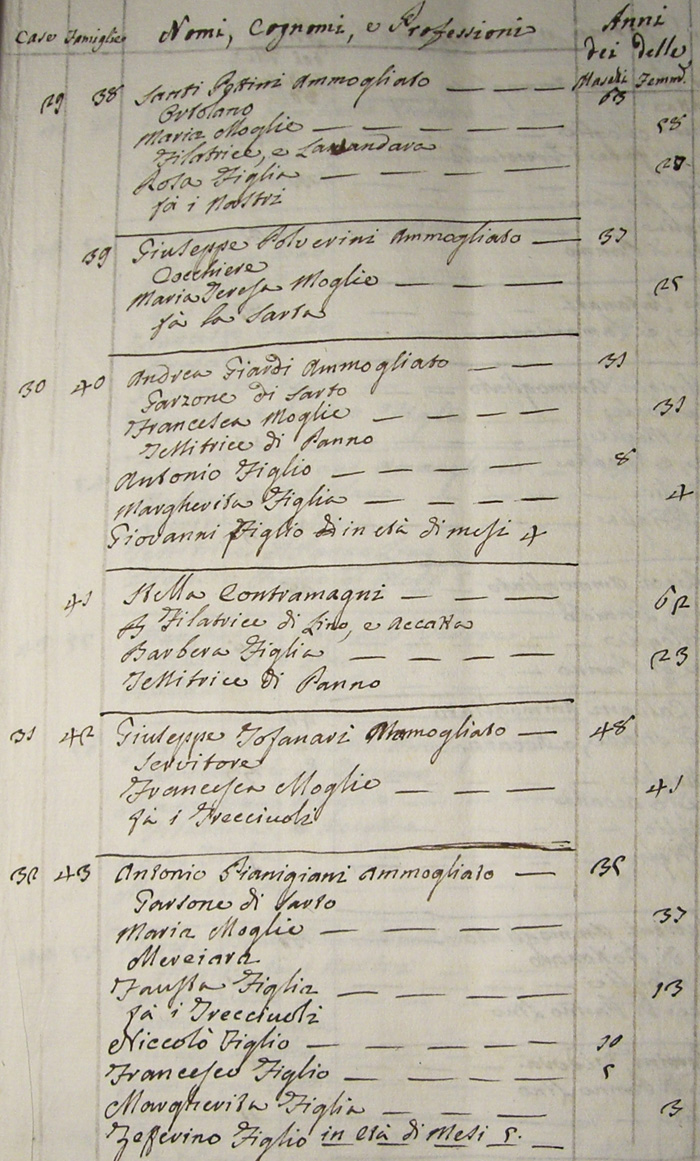 Case Famiglie Nomi, Cognomi, e Professioni Anni
dei delle
Maschi Femm.
29 38 Santi Pettini Ammogliato 63
Ortolano
Maria Moglie 58
Filatrice, e Lavandara
Rosa Figlia
fà i Nastri
39 Giuseppe Polverini Ammogliato 37
Cocchiere
Maria Teresa Moglie 25
fà la Sarta
30 40 Andrea Giardi Ammogliato 31
Garzone di Sarto
Francesca Moglie 31
Tessitrice di Panno
Antonio Figlio 8
Margherita Figlia 4
Giovanni Figlio in età di mesi 4
41 Stella Contramagni 62
Filatrice di Lino, e Accatta
Barbera Figlia 23
Tessitrice di Panno
31 42 Giuseppe Tofanari Ammogliato 48
Servitore
Francesca Moglie 41
fà i Trecciuoli
32 43 Antonio Pianigiani Ammogliato 35
Garsone di Sarto
Maria Moglie 37
Merciara
Fausta Figlia 13
fà i Trecciuoli
Niccolò Figlio 10
Francesco Figlio 5
Margherita Figlia 3
Zefferino Figlio in Età di Mesi 5.